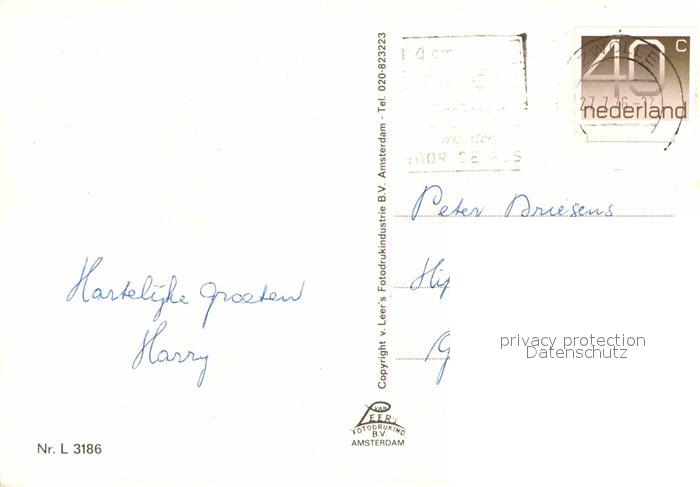 Hartelijke groeten
Harry
Nr. L 3186
Copyright v. Leer's Fotodrukindustrie B.V. Amsterdam - Tel. 020-823223
VAN
LEER'S
FOTODRUKIND
B.V.
AMSTERDAM
40 C
nederland
ZWOLLE
27.7.76
Peter Driesens
privacy protection
Datenschutz